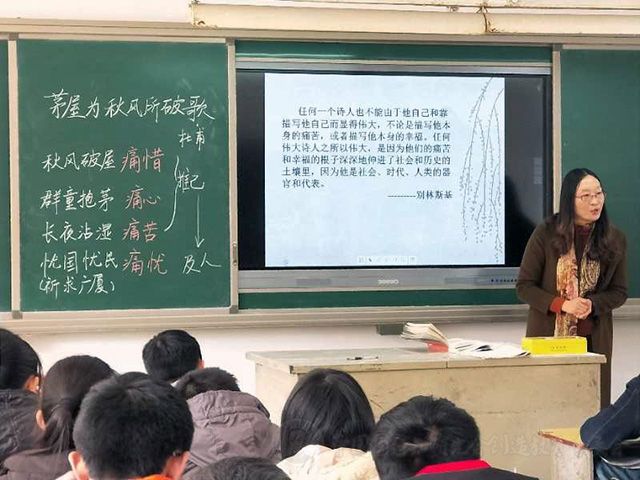 茅屋为秋风所破歌
杜甫
秋风破屋 痛惜
群童抱茅 痛心
长夜沾湿 痛苦
忧国忧民 痛忧
(祈求广厦)
推己
及人
任何一个诗人也不能由于他自己和靠
描写他自己而显得伟大，不论是描写他本
身的痛苦，或者描写他本身的幸福。任何
伟大诗人之所以伟大，是因为他们的痛苦
和幸福的根子深深地伸进了社会和历史的
土壤里，因为他是社会、时代、人类的器
官和代表。
--------别林斯基